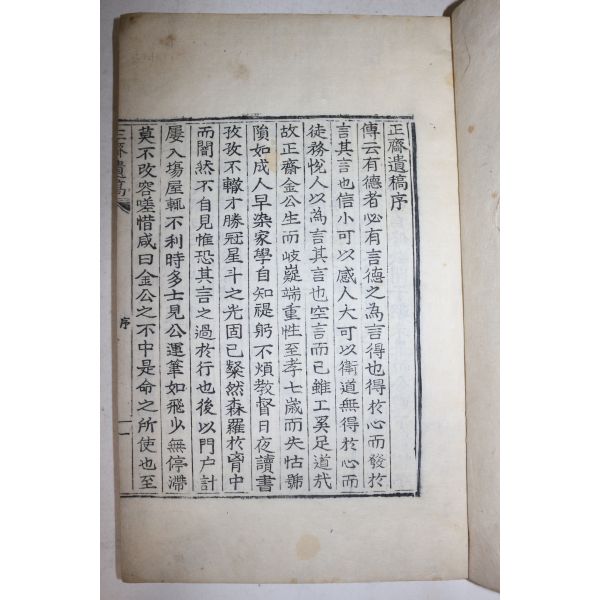 正齋遺稿序
傳云有德者必有言德之為言得也得於心而發於
言其言也信小可以感人大可以衛道無得於心而
徒務悅人以為言其言也空言而已雖工奚足道哉
故正齋金公生而岐嶷端重性至孝七歲而失怙號
隕如成人早染家學自知禔躬不煩敎督日夜讀書
孜孜不轍才勝冠星斗之光固已粲然森羅於胷中
而闇然不自見惟恐其言之過於行也後以門户計
屢入塲屋輒不利時多士見公運筆如飛少無停滯
莫不改容嗟惜咸曰金公之不中是命之所使也至
正齋遺稿
序
一